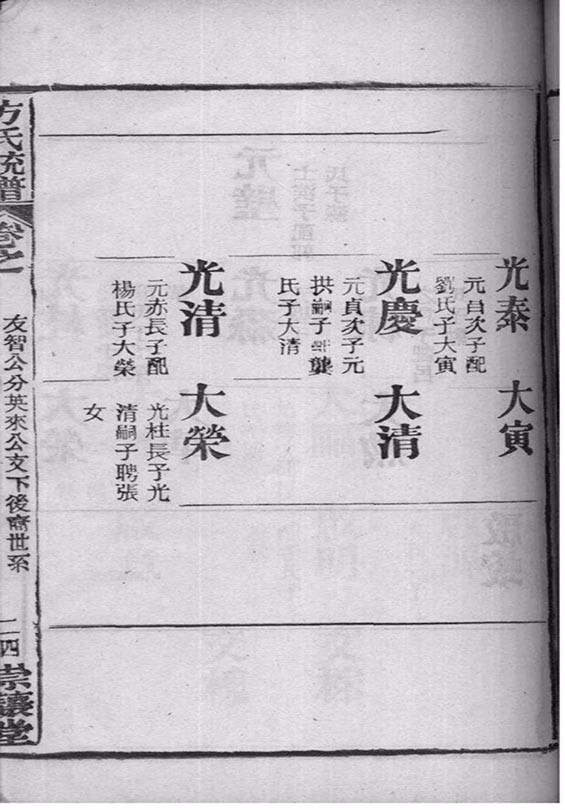 光泰
元自次子配
劉氏子大寅
大寅
光慶
元貞次子元
拱嗣子配龔
氏子大清
大清
光清
元赤長子配
楊氏子大榮
大榮
光柱長子光
清嗣子聘張
女
方氏統譜
卷之一
友智公分英來公文下後裔世系
二四
崇讓堂